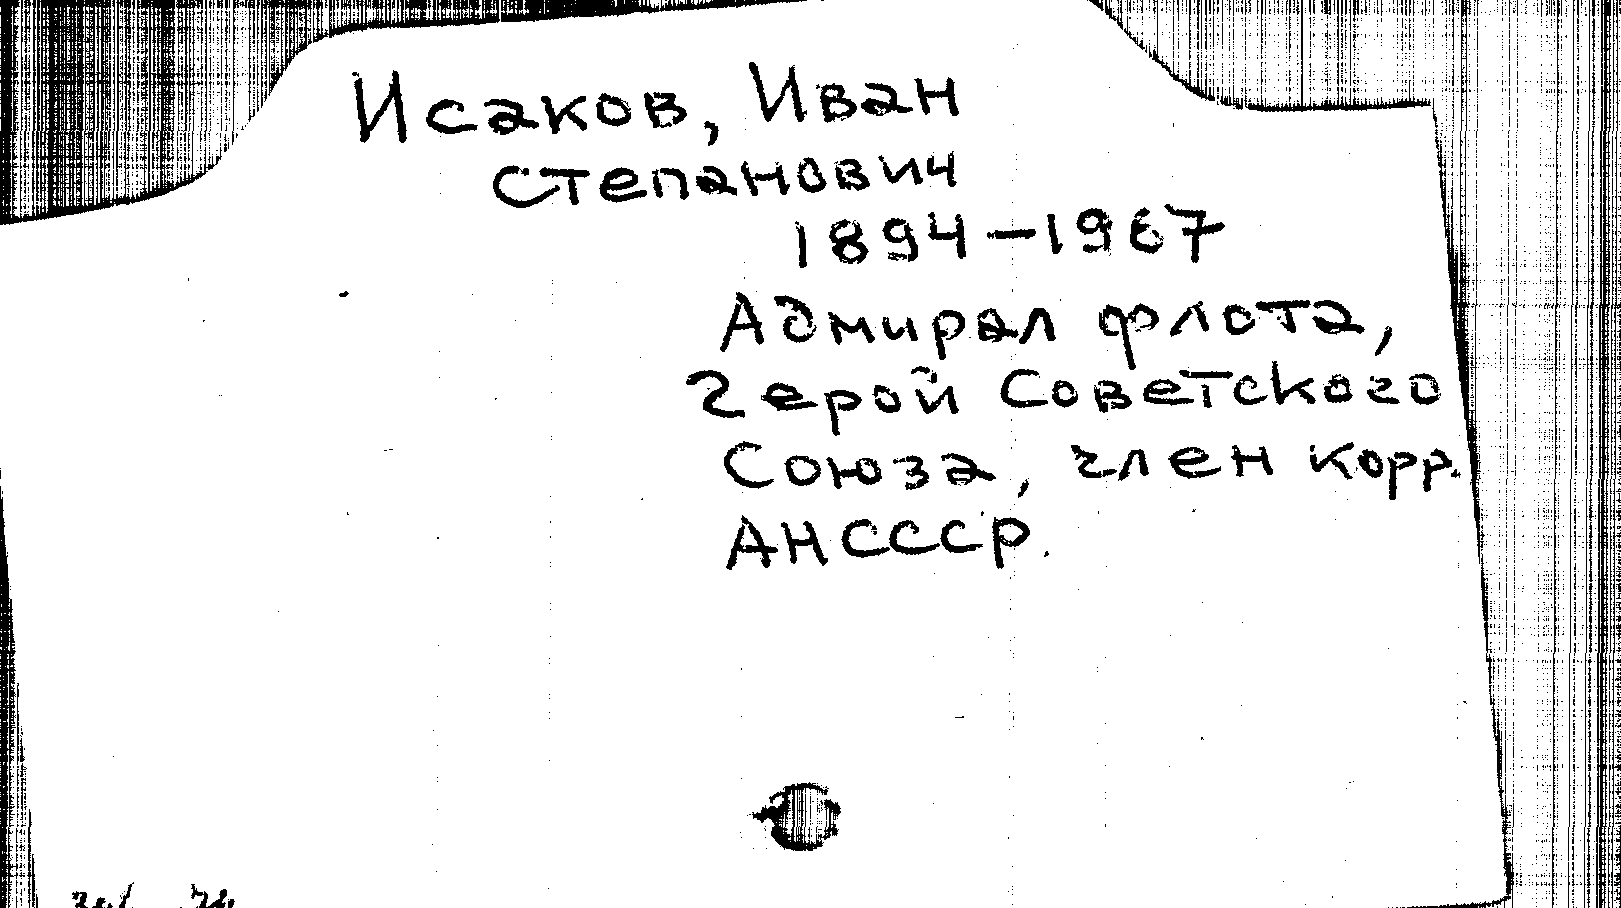 Исаков, Иван
Степанович
1894-1967
Адмирал флота,
Герой Советского
Союза, член корр.
АНСССР.